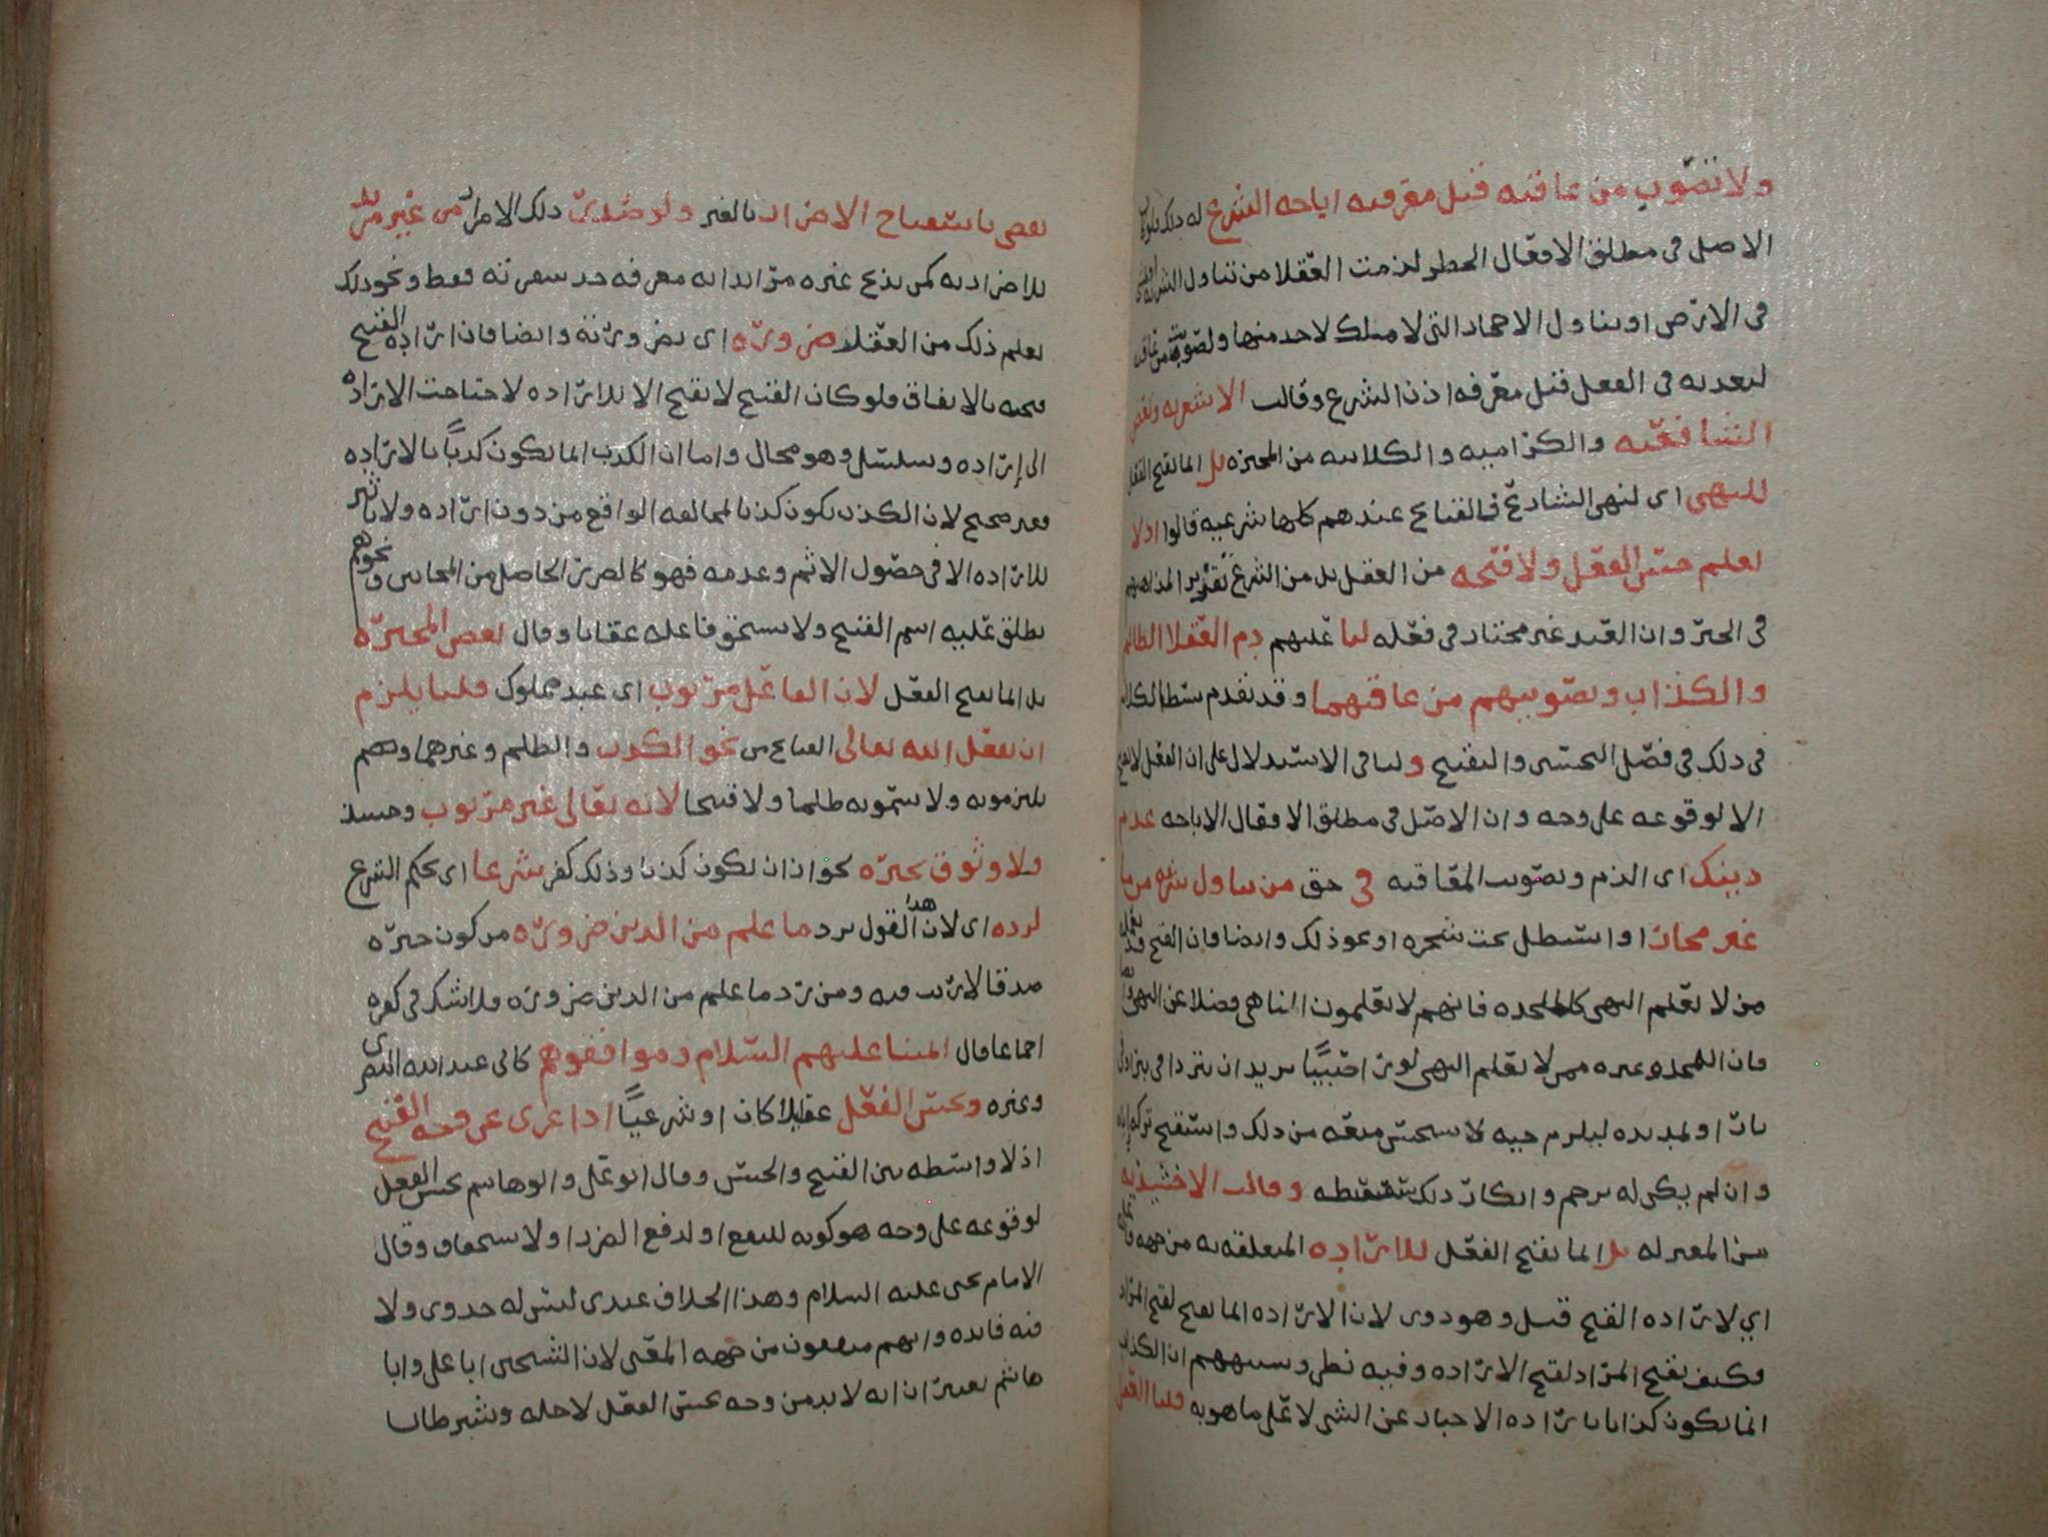 ولا تصوب من عاقبه قبل معرفه اباحه الشرع له ذلك
الاصل في مطلق الافعال الحظر لذمت العقلا من تناول
في الارض او تناول الاحجار التي لا ملك لاحد منها ولصوبت من عاقبه
لتعديه في الفعل قبل معرفه اذن الشرع وقالت الاشعريه وبعض
الشافعيه والكراميه والكلابيه من المجبره بل انما يقبح الفعل
للنهي اي لنهي الشارع فالقبائح عندهم كلها شرعيه قالوا اذ لا
يعلم حسن الفعل ولا قبحه من العقل بل من الشرع
في الجبر وان العبد غير مختار في فعله لنا عليهم ذم العقلا الظالم
والكذاب وتصويبهم من عاقبهما وقد تقدم بسط الكلام
في ذلك في فصل التحسين والتقبيح ولنا في الاستدلال على ان الفعل لا يقبح
الا لوقوعه على وجه وان الاصل في مطلق الافعال الاباحه عدم
ذينك اي الذم وتصويب المعاقبه في حق من تناول شربه من ما
غير محاز او استظل تحت شجره او نحو ذلك وايضا فان القبح قد يعلمه
من لا يعلم النهي كالملحده فانهم لا يعلمون الناهي فضلا عن النهي
فان الملحد وغيره ممن لا يعلم النهي لو راى صبيا يريد ان يتردى في بئر او في
نار او لم يديه لينزم حيه لا يستحسن منعه من ذلك واستقبح تركه اياه
وان لم يكن له برحم وانكار ذلك سفسطه وقالت الاخشيذيه
من المعتزله بل انما يقبح الفعل للاراده المتعلقه به من جهه فاعله
اي لاراده القبح قبل وهو دوى لان الاراده انما تقبح لقبح المراد
فكيف يقبح المراد لقبح الاراده وفيه نظر وشبهتهم ان الكذب
انما يكون كذبا باراده الاخبار عن الشي لا على ما هو به قلنا العقل
يقضي باستقباح الاضرار بالغير ولو صدر ذلك الاضرار من غير مريد
للاضرار به كمن يذبح غيره مريدا به معرفه حد شفرته فقط ونحو ذلك
يعلم ذلك من العقلا ضروره اي بضرورته وايضا فان اراده القبيح
قبيحه بالاتفاق فلو كان القبيح لا يقبح الا للاراده لاحتاجت الاراده
الى اراده وتسلسل وهو محال واما ان الكذب انما يكون كذبا بالاراده
فغير صحيح لان الكذب يكون كذبا لمخالفه الواقع من دون اراده ولا تاثير
للاراده الا في حصول الاثم وعدمه فهو كالضرر الحاصل من المجانين ونحوهم
يطلق عليه اسم القبيح ولا يستحق فاعله عقابا وقال بعض المجبره
بل انما يقبح الفعل لان الفاعل مربوب اي عبد مملوك قلنا يلزم
ان يفعل الله تعالى القبائح من نحو الكذب والظلم وغيرهما وهم
يلتزمونه ولا يسمونه ظلما ولا قبيحا لانه تعالى غير مربوب وحينئذ
فلا وثوق بخبره لجواز ان يكون كذبا وذلك كفر شرعا اي بحكم الشرع
لرده اي لان هذا القول يرد ما علم من الدين ضروره من كون خبره
صدقا لا ريب فيه ومن رد ما علم من الدين ضروره فلا شك في كفره
اجماعا قال ائمتنا عليهم السلام وموافقوهم كابي عبد الله البصري
وغيره ويحسن الفعل عقليا كان او شرعيا اذا عري عن وجه القبح
اذ لا واسطه بين القبح والحسن وقال ابو علي وابو هاشم يحسن الفعل
لوقوعه على وجه هو كونه للنفع او لدفع الضرر او لاستحقاق وقال
الامام يحيى عليه السلام وهذا الخلاف عندي ليس له جدوى ولا
فيه فائده وانهم متفقون من جهه المعنى لان الشيخين ابا علي وابا
هاشم يعتبران انه لا بد من وجه يحسن الفعل لاجله ونشترطان